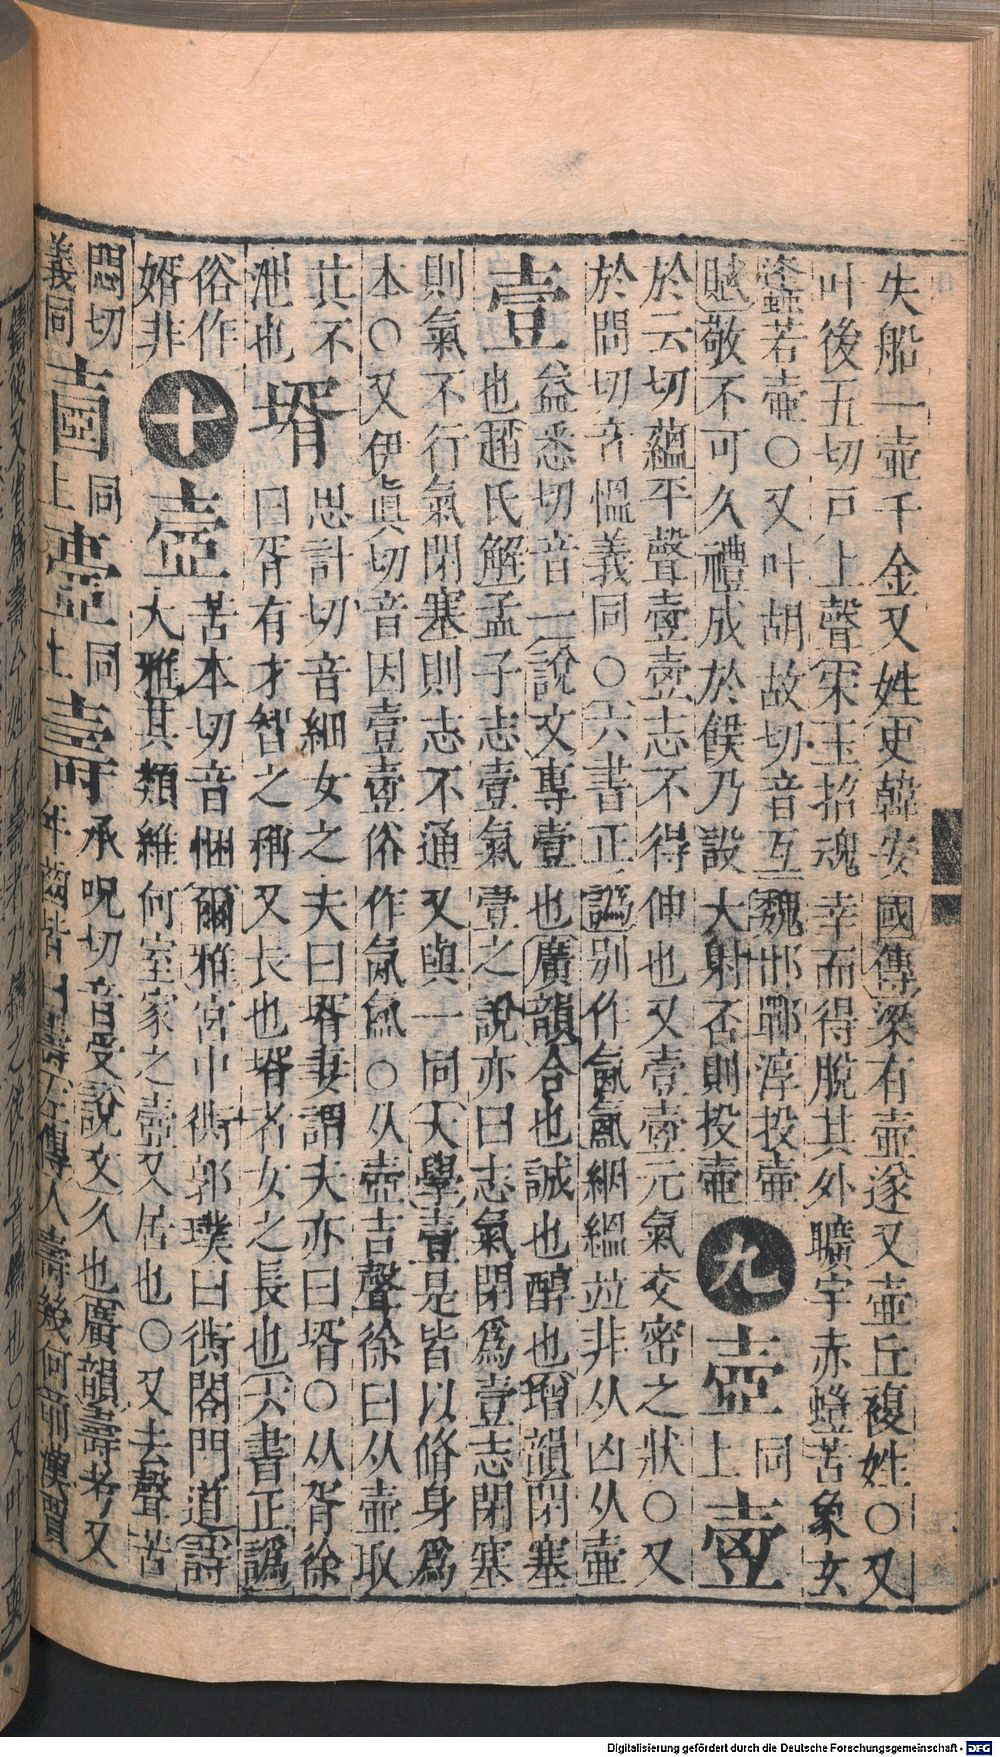 失船一壺千金又姓史韓安國傳梁有壺遂又壺丘複姓○又
叶後五切戸上聲宋玉招魂幸而得脫其外曠宇赤螘若象玄
蠭若壺○又叶胡故切音互魏邯鄲淳投壺
賦敬不可久禮成於飫乃設大射否則投壺
九
壺
同
上
壺
於云切蘊平聲壹壺志不得伸也又壹壺元氣交密之狀○又
於問切音慍義同○六書正譌別作氤氳絪縕竝非从凶从壺
壹
益悉切音一說文專壹也廣韻合也誠也醇也增韻閉塞
也趙氏解孟子志壹氣壹之說亦曰志氣閉爲壹志閉塞
則氣不行氣閉塞則志不通又與一同大學壹是皆以脩身爲
本○又伊眞切音因壹壺俗作氤氳○从壺吉聲徐曰从壺取
其不
泄也
壻
思計切音細女之夫曰壻妻謂夫亦曰壻○从胥徐
曰胥有才智之稱又長也壻者女之長也六書正譌
俗作
婿非
十
壼
苦本切音悃爾雅宮中衖郭璞曰衖閤門道詩
大雅其類維何室家之壼又居也○又去聲苦
悶切
義同
同
上
同
上
壽
承呪切音受說文久也廣韻壽考又
年齒皆曰壽左傳人壽幾何前漢賈
Digitalisierung gefördert durch die Deutsche Forschungsgemeinschaft - DFG